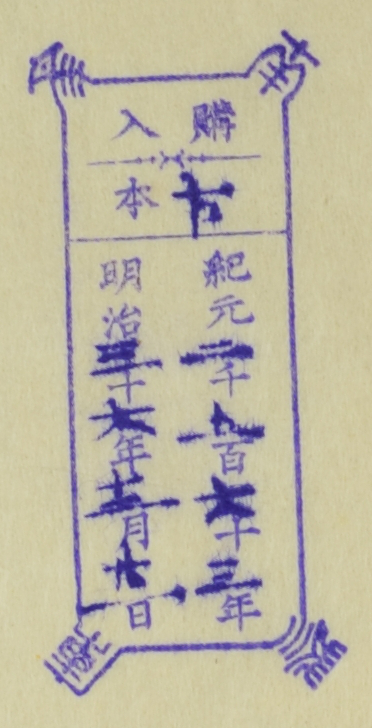 購入
古本
紀元二千五百六十三年
明治三十六年十二月 日